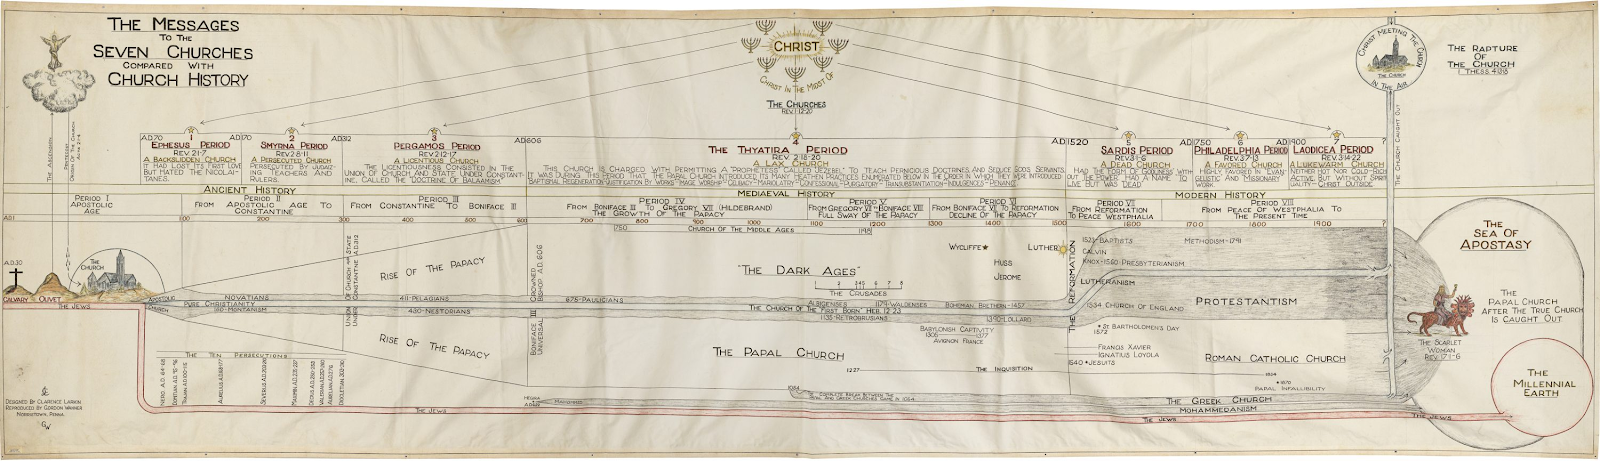 THE MESSAGES
TO THE
SEVEN CHURCHES
COMPARED WITH
CHURCH HISTORY
CHRIST
CHRIST IN THE MIDST OF
THE CHURCHES
REV. 1:12-20
CHRIST MEETING THE CHURCH
THE CHURCH
IN THE AIR
THE RAPTURE
OF
THE CHURCH
I THESS. 4:13-18
THE ASCENSION
PENTECOST
ORIGIN OF THE CHURCH
THE CHURCH CAUGHT OUT
A.D. 70
1
EPHESUS PERIOD
REV. 2:1-7
A BACKSLIDDEN CHURCH
IT HAD LOST ITS "FIRST LOVE"
BUT HATED THE NICOLAI-
TANES.
A.D. 170
2
SMYRNA PERIOD
REV. 2:8-11
A PERSECUTED CHURCH
PERSECUTED BY JUDAIZ-
ING TEACHERS AND
RULERS.
A.D. 312
3
PERGAMOS PERIOD
REV. 2:12-17
A LICENTIOUS CHURCH
THE LICENTIOUSNESS CONSISTED IN THE
UNION OF CHURCH AND STATE UNDER CONSTANT-
INE, CALLED THE "DOCTRINE OF BALAAMISM"
A.D. 606
4
THE THYATIRA PERIOD
REV. 2:18-20
A LAX CHURCH
THIS CHURCH IS CHARGED WITH PERMITTING A "PROPHETESS" CALLED "JEZEBEL" TO TEACH PERNICIOUS DOCTRINES AND SEDUCE GOD'S SERVANTS.
IT WAS DURING THIS PERIOD THAT THE PAPAL CHURCH INTRODUCED ITS MANY HEATHEN PRACTICES ENUMERATED BELOW IN THE ORDER IN WHICH THEY WERE INTRODUCED
BAPTISMAL REGENERATION - JUSTIFICATION BY WORKS - IMAGE WORSHIP - CELIBACY - MARIOLATRY - CONFESSIONAL - PURGATORY - TRANSUBSTANTIATION - INDULGENCES - PENANCE.
A.D. 1520
5
SARDIS PERIOD
REV. 3:1-6
A DEAD CHURCH
HAD THE FORM OF GODLINESS WITH-
OUT THE POWER, HAD A NAME TO
LIVE BUT WAS DEAD
A.D. 1750
6
PHILADELPHIA PERIOD
REV. 3:7-13
A FAVORED CHURCH
HIGHLY FAVORED IN EVAN-
GELISTIC AND MISSIONARY
WORK.
A.D. 1900
7
LAODICEA PERIOD
REV. 3:14-22
A LUKEWARM CHURCH
NEITHER HOT NOR COLD - RICH
ACTIVE, BUT WITHOUT SPIRIT-
UALITY - CHRIST OUTSIDE
?
ANCIENT HISTORY
MEDIAEVAL HISTORY
MODERN HISTORY
PERIOD I
APOSTOLIC
AGE
PERIOD II
FROM APOSTOLIC AGE TO
CONSTANTINE
PERIOD III
FROM CONSTANTINE TO BONIFACE III
PERIOD IV
FROM BONIFACE III TO GREGORY VII (HILDEBRAND)
THE GROWTH OF THE PAPACY
PERIOD V
FROM GREGORY VII - BONIFACE VIII
FULL SWAY OF THE PAPACY
PERIOD VI
FROM BONIFACE VIII TO REFORMATION
DECLINE OF THE PAPACY
PERIOD VII
FROM REFORMATION
TO PEACE WESTPHALIA
PERIOD VIII
FROM PEACE OF WESTPHALIA TO
THE PRESENT TIME
A.D. 1
100
200
300
400
500
600
700
800
900
1000
1100
1200
1300
1400
1500
1600
1700
1800
1900
?
750
CHURCH OF THE MIDDLE AGES
1198
A.D. 30
CALVARY
OLIVET
THE CHURCH
THE JEWS
APOSTOLIC
CHURCH
NOVATIANS
PURE CHRISTIANITY
MONTANISM
RISE OF THE PAPACY
RISE OF THE PAPACY
UNION OF CHURCH AND STATE
UNDER CONSTANTINE A.D. 312
411 - PELAGIANS
430 - NESTORIANS
BONIFACE III CROWNED
UNIVERSAL BISHOP A.D. 606
675 - PAULICIANS
"THE DARK AGES"
THE CRUSADES
ALBIGENSES
1179 - WALDENSES
BOHEMIAN BRETHERN - 1457
THE CHURCH OF THE "FIRST BORN" HEB. 12:23
1135 - PETROBRUSIANS
LOLLARD
BABYLONISH CAPTIVITY
AVIGNON FRANCE
WYCLIFFE
HUSS
JEROME
LUTHER
THE REFORMATION
1523 - BAPTISTS
CALVIN
KNOX - 1560 - PRESBYTERIANISM
LUTHERANISM
METHODISM - 1791
1534 CHURCH OF ENGLAND
PROTESTANTISM
ST BARTHOLOMEW'S DAY
1572
FRANCIS XAVIER
IGNATIUS LOYOLA
1540 JESUITS
THE PAPAL CHURCH
ROMAN CATHOLIC CHURCH
1227
THE INQUISITION
1834
1870
PAPAL INFALLIBILITY
1054
THE COMPLETE BREAK BETWEEN THE
PAPAL AND GREEK CHURCHES CAME IN 1054.
THE GREEK CHURCH
MOHAMMEDANISM
HEGIRA
A.D. 622
THE JEWS
THE JEWS
THE JEWS
THE TEN PERSECUTIONS
NERO A.D. 64-68
DOMITIAN A.D. 95-96
SEVERUS
DIOCLETIAN
THE SEA
OF
APOSTASY
THE
PAPAL CHURCH
AFTER THE TRUE CHURCH
IS CAUGHT OUT
THE SCARLET
WOMAN
REV. 17:1-6
THE
MILLENNIAL
EARTH
DESIGNED BY CLARENCE LARKIN
REPRODUCED BY GORDON WANNER
NORRISTOWN, PENNA.
GW